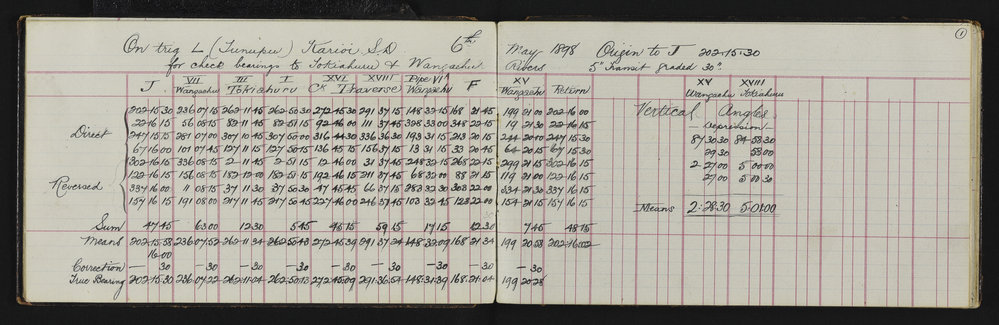 On trig L (Tunupu) Karioi S.D. 6th May 1898 Origin to J 202-15-30
for check bearings to Tokiahuru & Wangaehu Rivers 5" Transit graded 30".
1
J. VII Wangaehu III Tokiahuru I XVI Ck XVIII Traverse Pipe VIA Wangaehu F XV Wangaehu Return
Direct 202-15-30 236-07-15 262-11-45 262-50-30 272-45-30 291-37-15 148-32-15 168 21-45 199 21-00 202-16-00
22-16-15 56-08-15 82-11-45 82-51-15 92-46-00 111 37-45 328-33-00 348 22-15 19 21-30 22-16-15
247 15-15 281 07-00 307 10-45 307 50-00 316 44-30 336 36-30 193 31-15 213 20-15 244 20-10 247 15-30
67 16-00 101 07-45 127 11-15 127 50-15 136 45-15 156 37-15 13 31-15 33 20-45 64 20-15 67 15-30
Reversed 302-16-15 336 08-15 2-11-45 2-51-15 12-46-00 31 37-45 248 32-15 268 22-15 299 21-15 302 16-15
122-16-15 156 08-15 182-12-00 182-51-15 192-46-15 211 37-45 68 32-00 88 21-15 119 21-00 122-16-15
337 16-00 11 08-15 37 11-30 37 50-30 47 45-45 66 37-15 283 32-30 303 22-00 334 21-30 337 16-15
157 16-15 191 08-00 217 11-45 217 50-45 227 46-00 246 37-45 103 32-45 123 22-00 154 21-15 157 16-15
Sum 47-45 63-00 12-30 5-45 45-15 59-15 17-15 12-30 7-45 48-15
Means 202-15-58 236-07-52 262-11-34 262-50-43 272-45-39 291-37-24 148-32-09 168 21-34 199 20-58 202-16-02
16-00
Correction — 30 — 30 — 30 — 30 — 30 — 30 — 30 — 30 — 30
True Bearing 202-15-30 236-07-22 262-11-04 262-50-13 272-45-09 291-36-54 148-31-39 168-21-04 199 20-28
XV Wangaehu XVIII Tokiahuru
Vertical Angles
— Depression —
87 30-30 84-58-30
29-30 58-00
2-27-00 5 00-00
27-00 5 00-30
Means 2-28-30 5-01-00